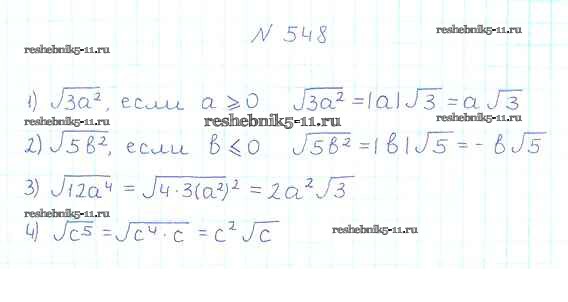 N 548
reshebnik5-11.ru
reshebnik5-11.ru
1) √3a², если a ⩾ 0 √3a² = |a|√3 = a√3
reshebnik5-11.ru
reshebnik5-11.ru
reshebnik5-11.ru
2) √5в², если в ⩽ 0 √5в² = |в|√5 = - в√5
3) √12a⁴ = √4·3(a²)² = 2a²√3
reshebnik5-11.ru
4) √c⁵ = √c⁴·c = c²√c
reshebnik5-11.ru